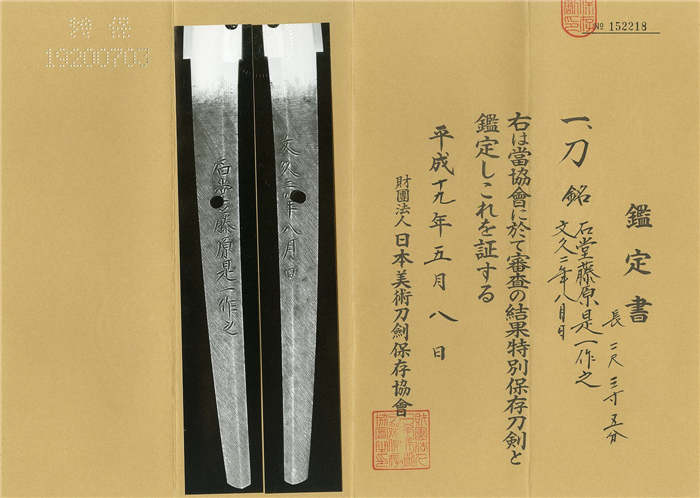 No 152218
鑑定書
一、刀 銘 石堂藤原是一作之
文久二年八月日
長 二尺三寸五分
右は當協會に於て審査の結果特別保存刀剣と
鑑定しこれを証する
平成十九年五月八日
財團法人 日本美術刀劍保存協會
文久二年八月日
石堂藤原是一作之
特保
19200703